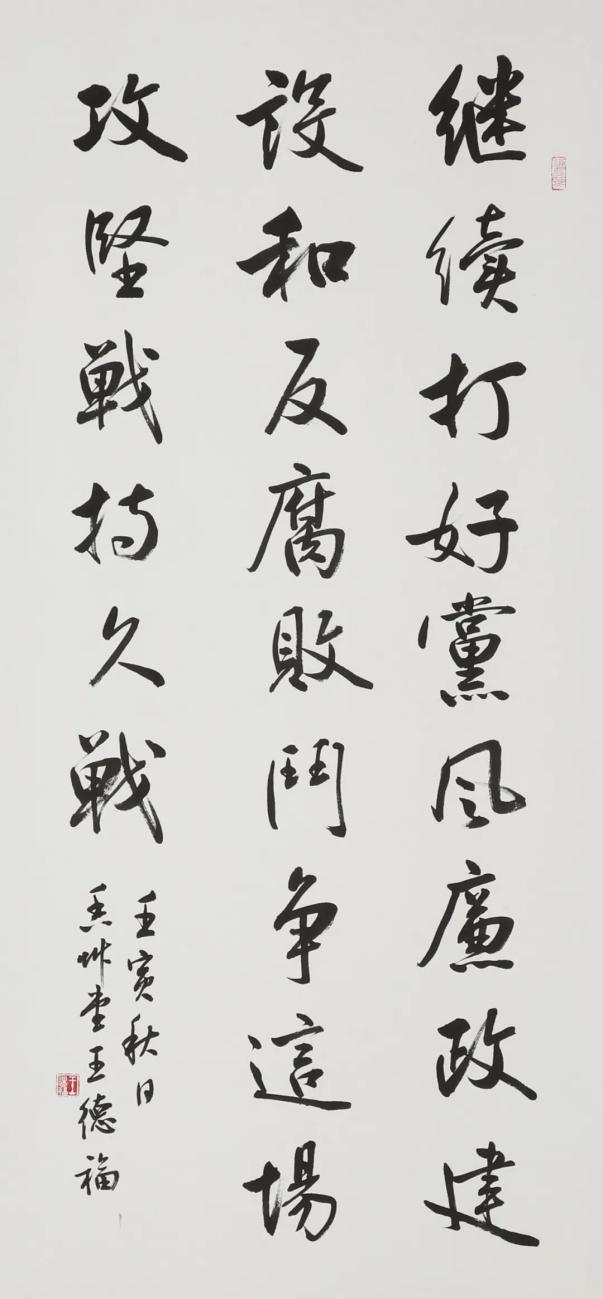 继續打好黨风廉政建
設和反腐敗鬥争這場
攻堅戰持久戰
壬寅秋日
王德福